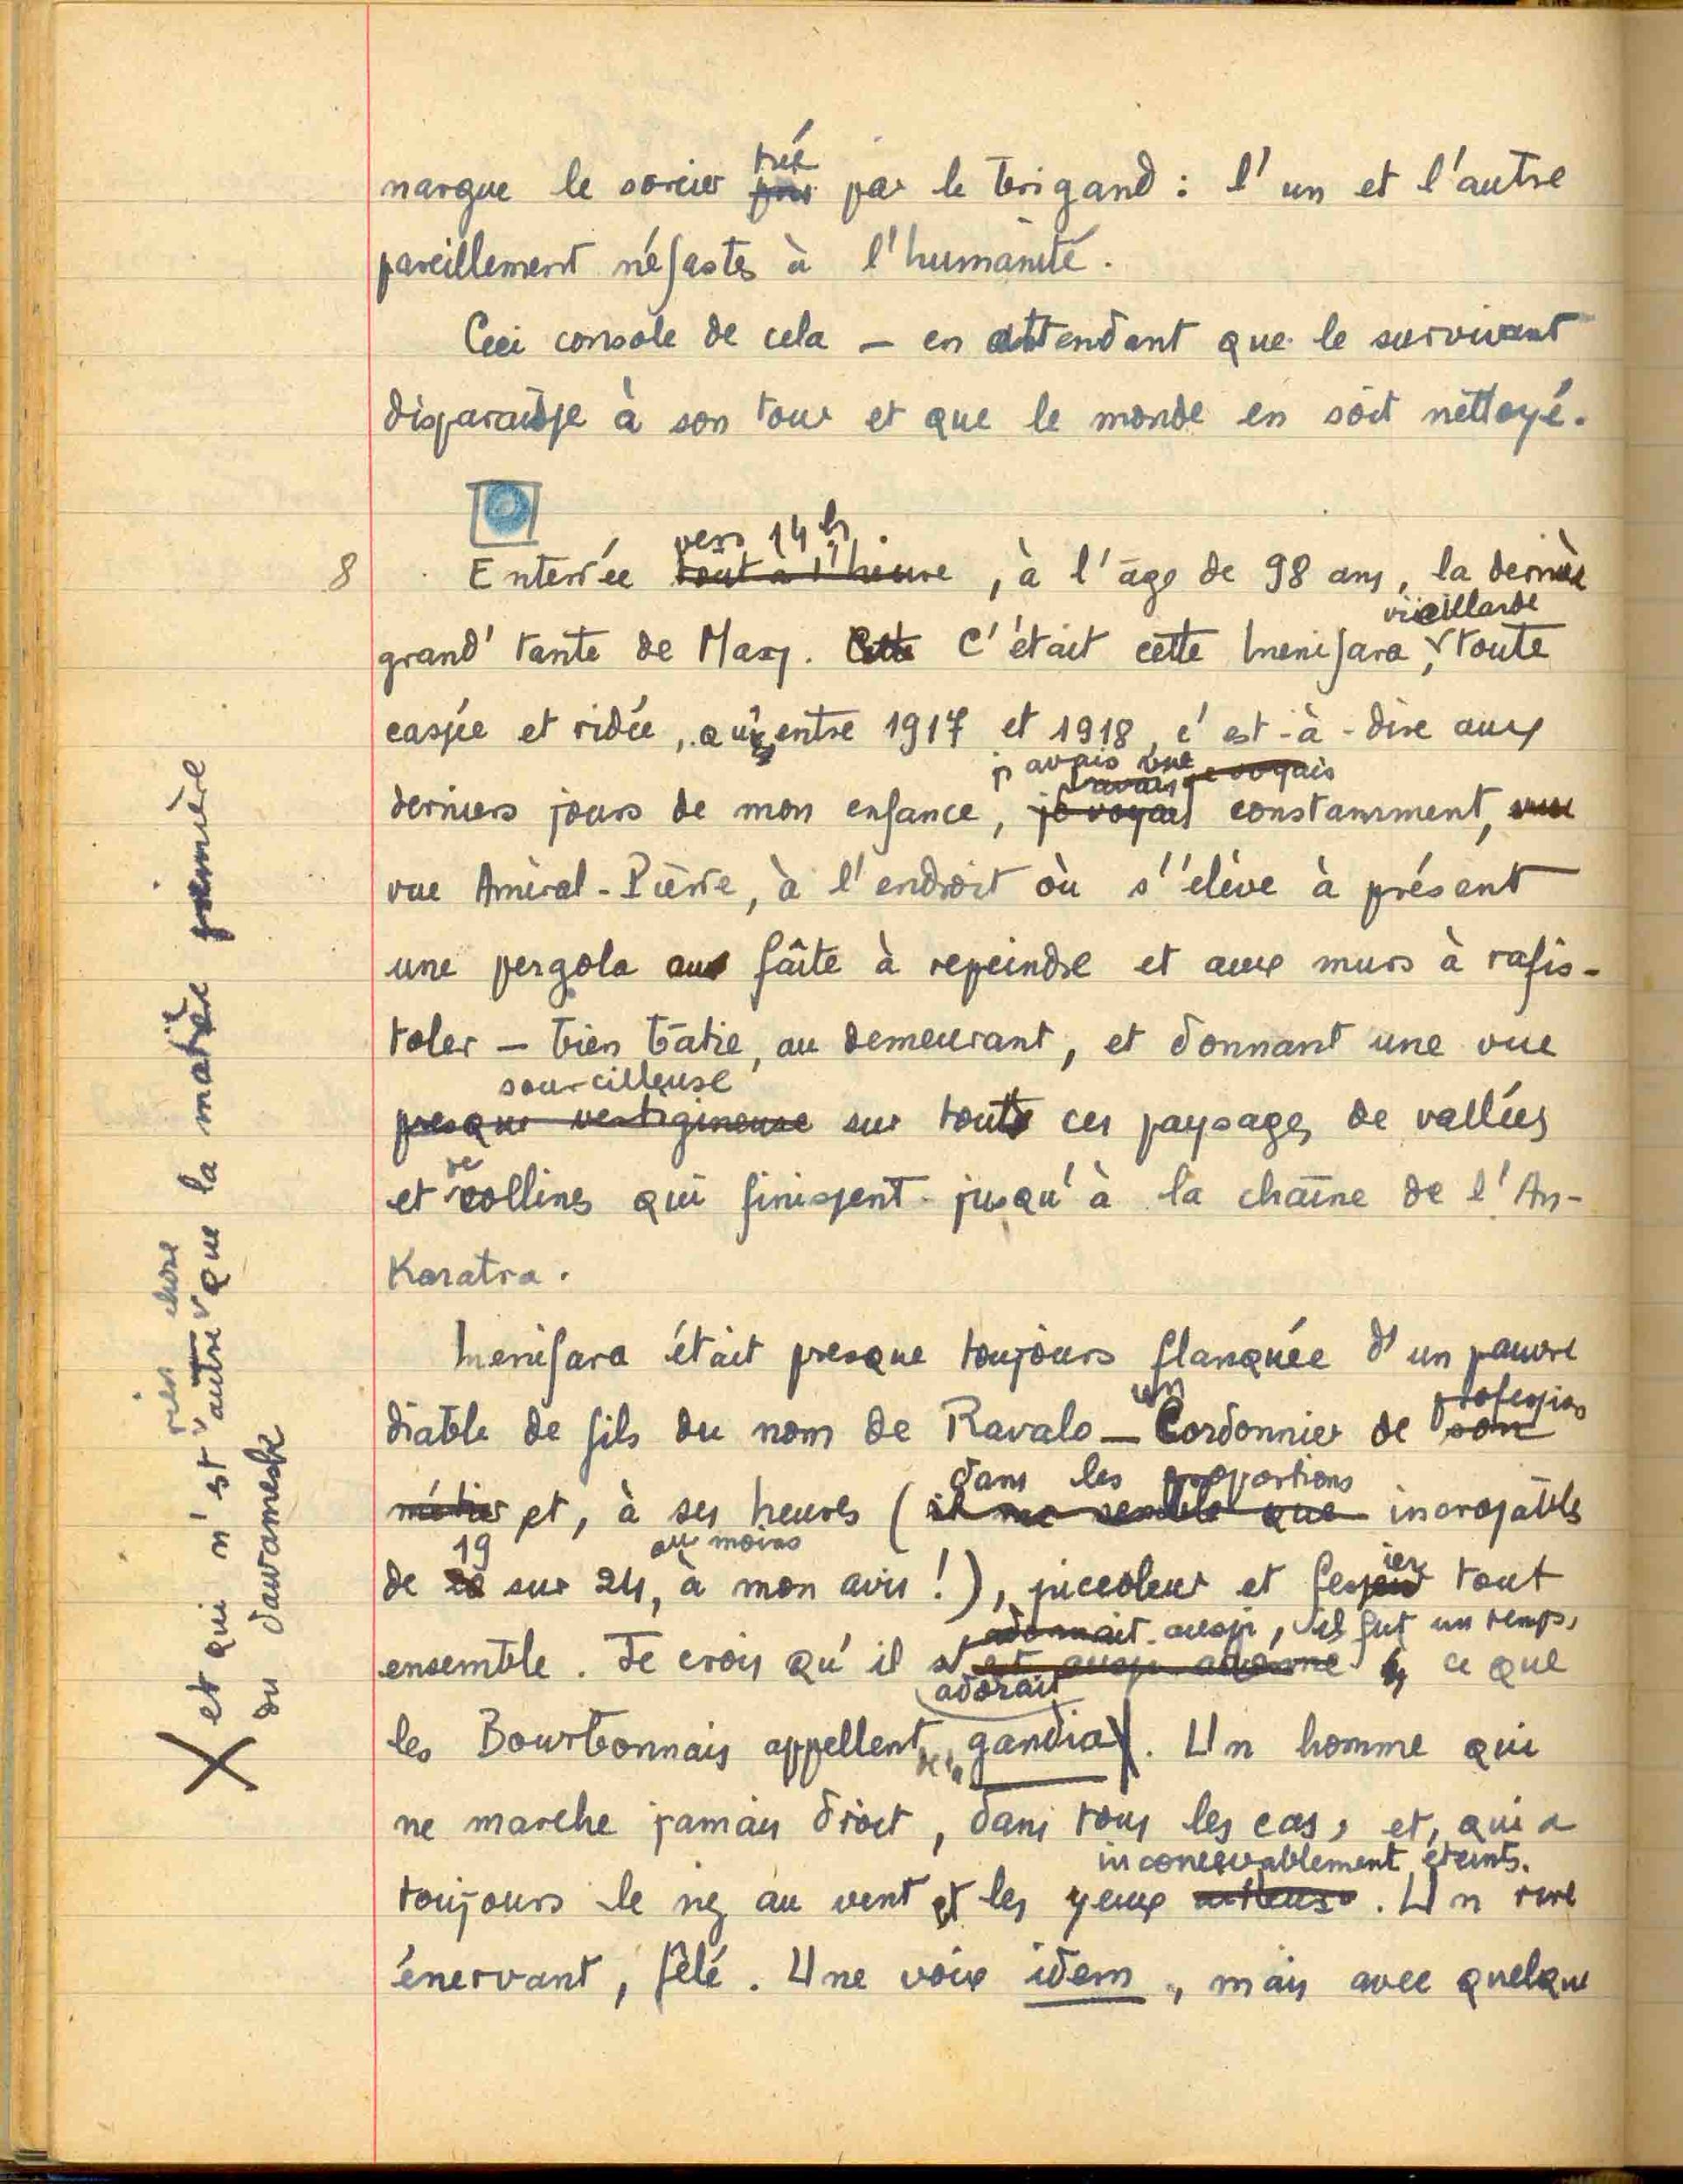 nargue le sorcier tué par le brigand : l'un et l'autre
pareillement néfastes à l'humanité.
Ceci console de cela — en attendant que le survivant
disparaisse à son tour et que le monde en soit nettoyé.
vers 14 h.
8 Enterrée tout à l'heure, à l'âge de 98 ans, la dernière
vieillarde
grand'tante de Mary. Cette C'était cette Inenifara, toute
cassée et ridée, qu'entre 1917 et 1918, c'est-à-dire aux
j'avais vue
avais je voyais
derniers jours de mon enfance, je voyais constamment, rue
rue Amiral-Pierre, à l'endroit où s'élève à présent
une pergola au faîte à repeindre et aux murs à rafis-
toler — bien bâtie, au demeurant, et donnant une vue
sourcilleuse
presque vertigineuse sur tous ces paysages de vallées
de
et collines qui finissent jusqu'à la chaîne de l'An-
Karatra.
Inenifara était presque toujours flanquée d'un pauvre
un profession
diable de fils du nom de Ravalo — Cordonnier de son
dans les proportions
métier et, à ses heures (il me semble que incroyables
19 au moins
de sur 24, à mon avis !), picoleur et fessier tout
adonnait aussi, il fut un temps,
ensemble. Je crois qu'il s'est aussi adonné à ce que
adorait
les Bourbonnais appellent de la gandia X. Un homme qui
ne marche jamais droit, dans tous les cas, et, qui a
inconcevablement éteints.
toujours le nez au vent et les yeux. Un rire
énervant, fêlé. Une voix idem, mais avec quelque
rien chose
X et qui n'est autre que la matière première
du dawamesk